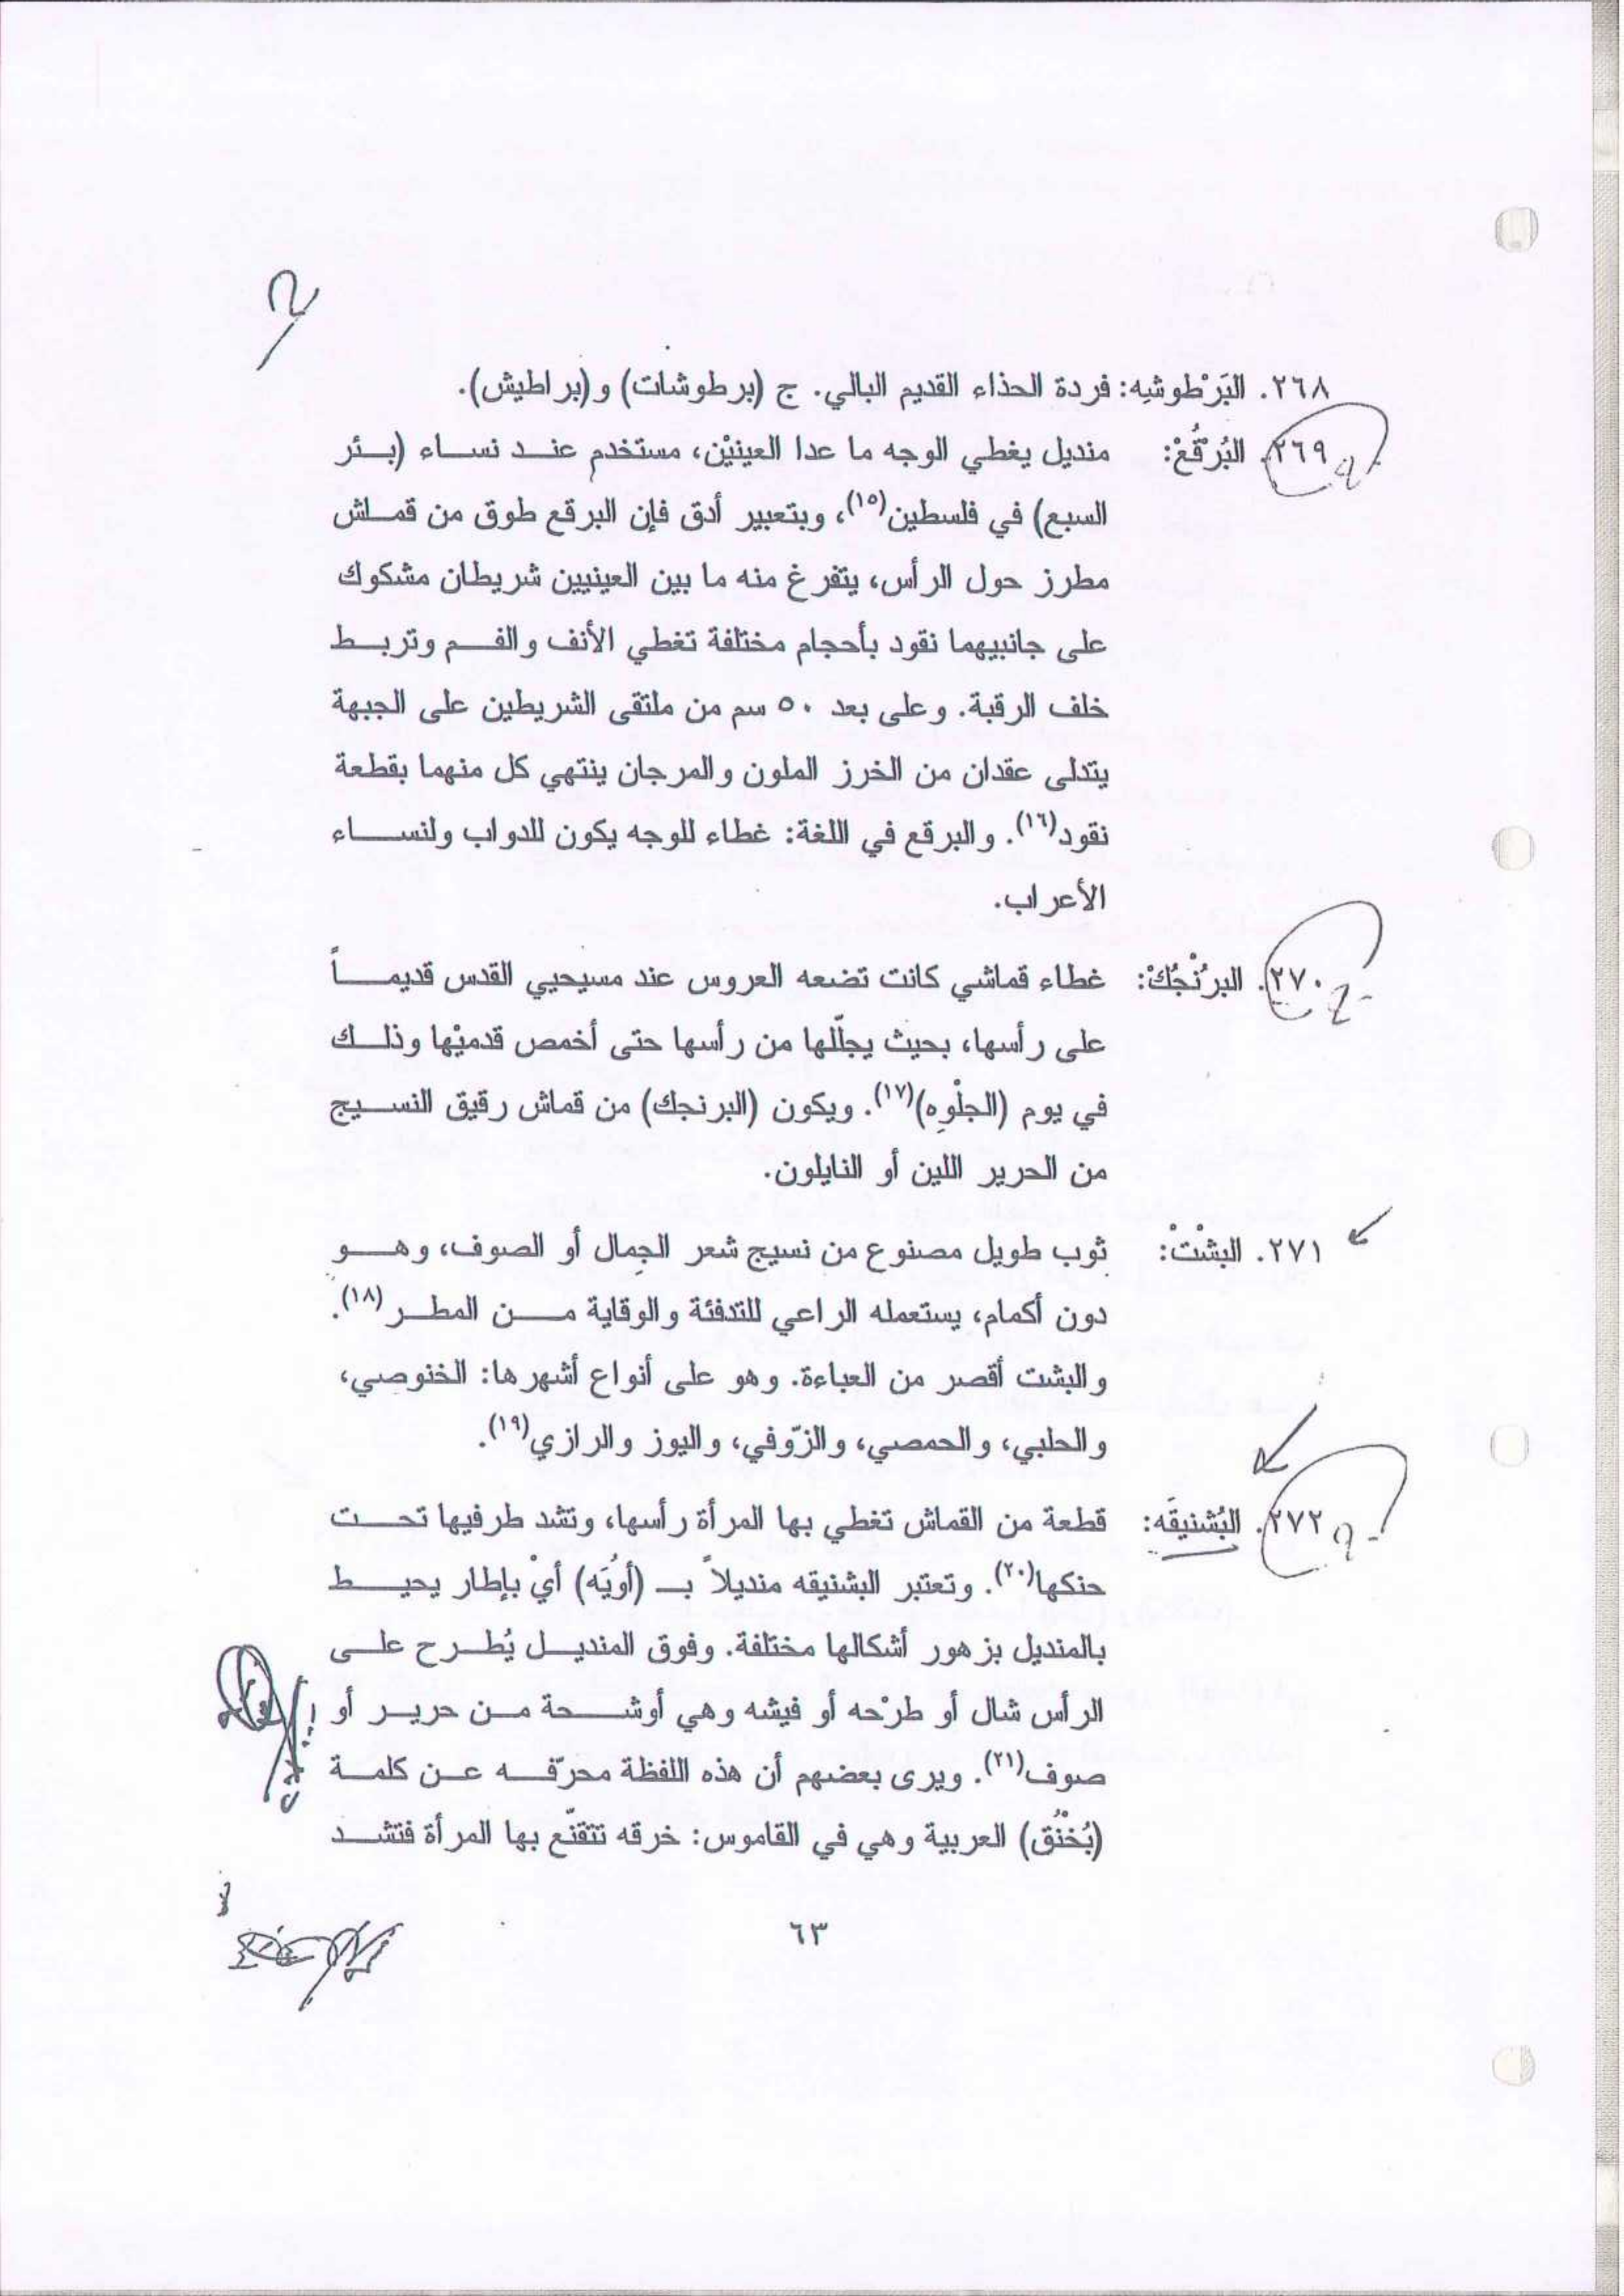 ٢٦٨. البَرْطوشِه: فردة الحذاء القديم البالي. ج (برطوشات) و(براطيش).
٢٦٩. البُرْقُعْ: منديل يغطي الوجه ما عدا العينيْن، مستخدم عند نساء (بئر
السبع) في فلسطين(١٥)، وبتعبير أدق فإن البرقع طوق من قماش
مطرز حول الرأس، يتفرغ منه ما بين العينيين شريطان مشكوك
على جانبيهما نقود بأحجام مختلفة تغطي الأنف والفم وتربط
خلف الرقبة. وعلى بعد ٥٠ سم من ملتقى الشريطين على الجبهة
يتدلى عقدان من الخرز الملون والمرجان ينتهي كل منهما بقطعة
نقود(١٦). والبرقع في اللغة: غطاء للوجه يكون للدواب ولنساء
الأعراب.
٢٧٠. البرُنْجُكْ: غطاء قماشي كانت تضعه العروس عند مسيحيي القدس قديماً
على رأسها، بحيث يجلّلها من رأسها حتى أخمص قدميْها وذلك
في يوم (الجلْوِه)(١٧). ويكون (البرنجك) من قماش رقيق النسيج
من الحرير اللين أو النايلون.
٢٧١. البشْتْ: ثوب طويل مصنوع من نسيج شعر الجِمال أو الصوف، وهو
دون أكمام، يستعمله الراعي للتدفئة والوقاية من المطر(١٨).
والبشت أقصر من العباءة. وهو على أنواع أشهرها: الخنوصي،
والحلبي، والحمصي، والزّوفي، واليوز والرازي(١٩).
٢٧٢. البُشنيقَه: قطعة من القماش تغطي بها المرأة رأسها، وتشد طرفيها تحت
حنكها(٢٠). وتعتبر البشنيقه منديلاً بـ (أويَه) أيْ بإطار يحيط
بالمنديل بزهور أشكالها مختلفة. وفوق المنديل يُطرح على
الرأس شال أو طرْحه أو فيشه وهي أوشحة من حرير أو
صوف(٢١). ويرى بعضهم أن هذه اللفظة محرّفه عن كلمة
(بُخْنُق) العربية وهي في القاموس: خرقه تتقنّع بها المرأة فتشد
٦٣